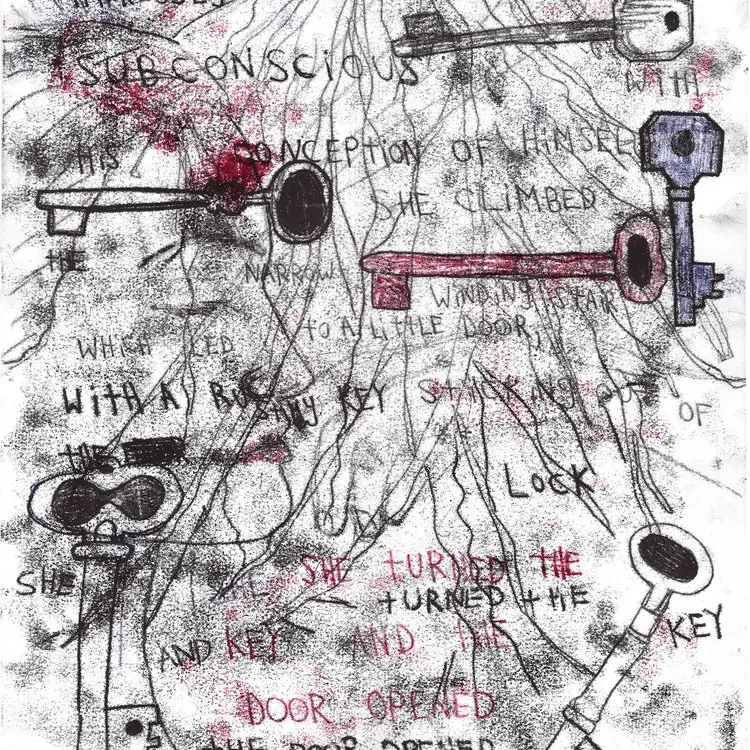 SUBCONSCIOUS
WITH
HIS CONCEPTION OF HIMSELF
SHE CLIMBED
THE NARROW WINDING STAIR
WHICH LED TO A LITTLE DOOR,
WITH A KEY STICKING OUT OF
THE LOCK
SHE SHE TURNED THE
TURNED THE
AND KEY AND THE KEY
DOOR OPENED
THE DOOR OPENED
5